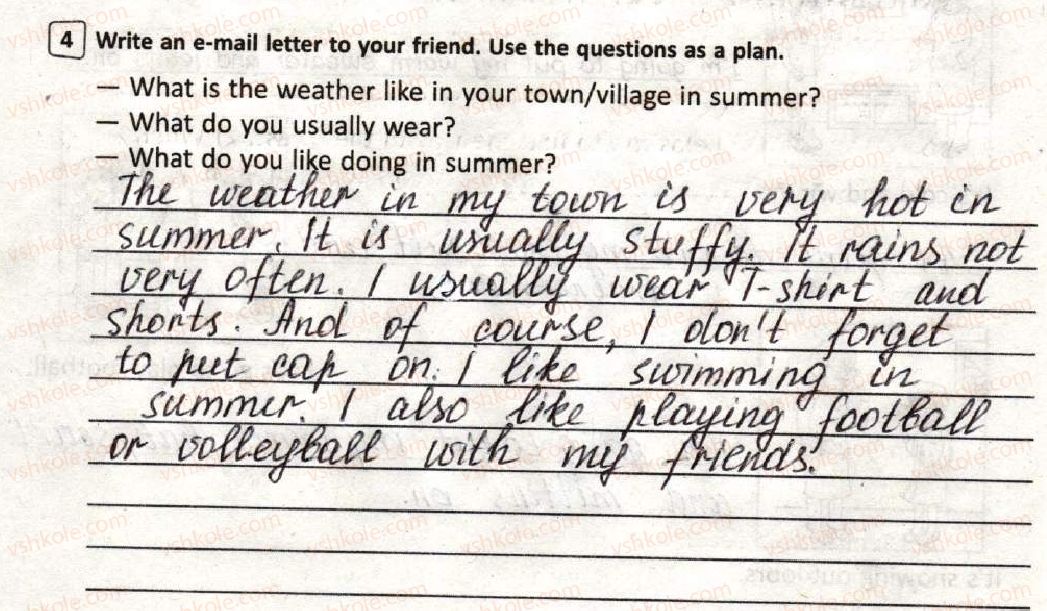 4 Write an e-mail letter to your friend. Use the questions as a plan.
— What is the weather like in your town/village in summer?
— What do you usually wear?
— What do you like doing in summer?
The weather in my town is very hot in
summer. It is usually stuffy. It rains not
very often. I usually wear T-shirt and
shorts. And of course, I don't forget
to put cap on. I like swimming in
summer. I also like playing football
or volleyball with my friends.